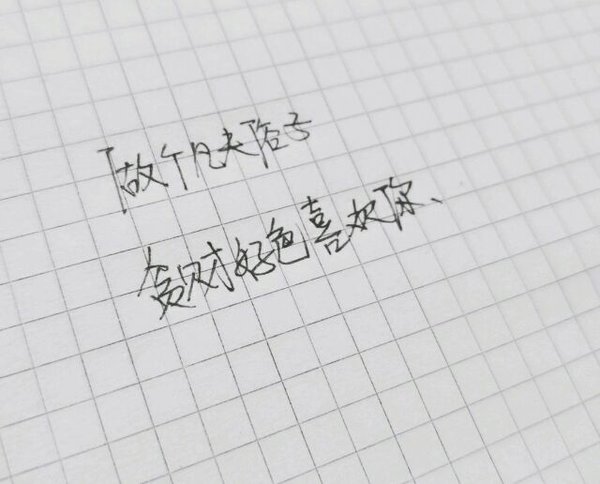 做个凡夫俗子
贪财好色喜欢你、